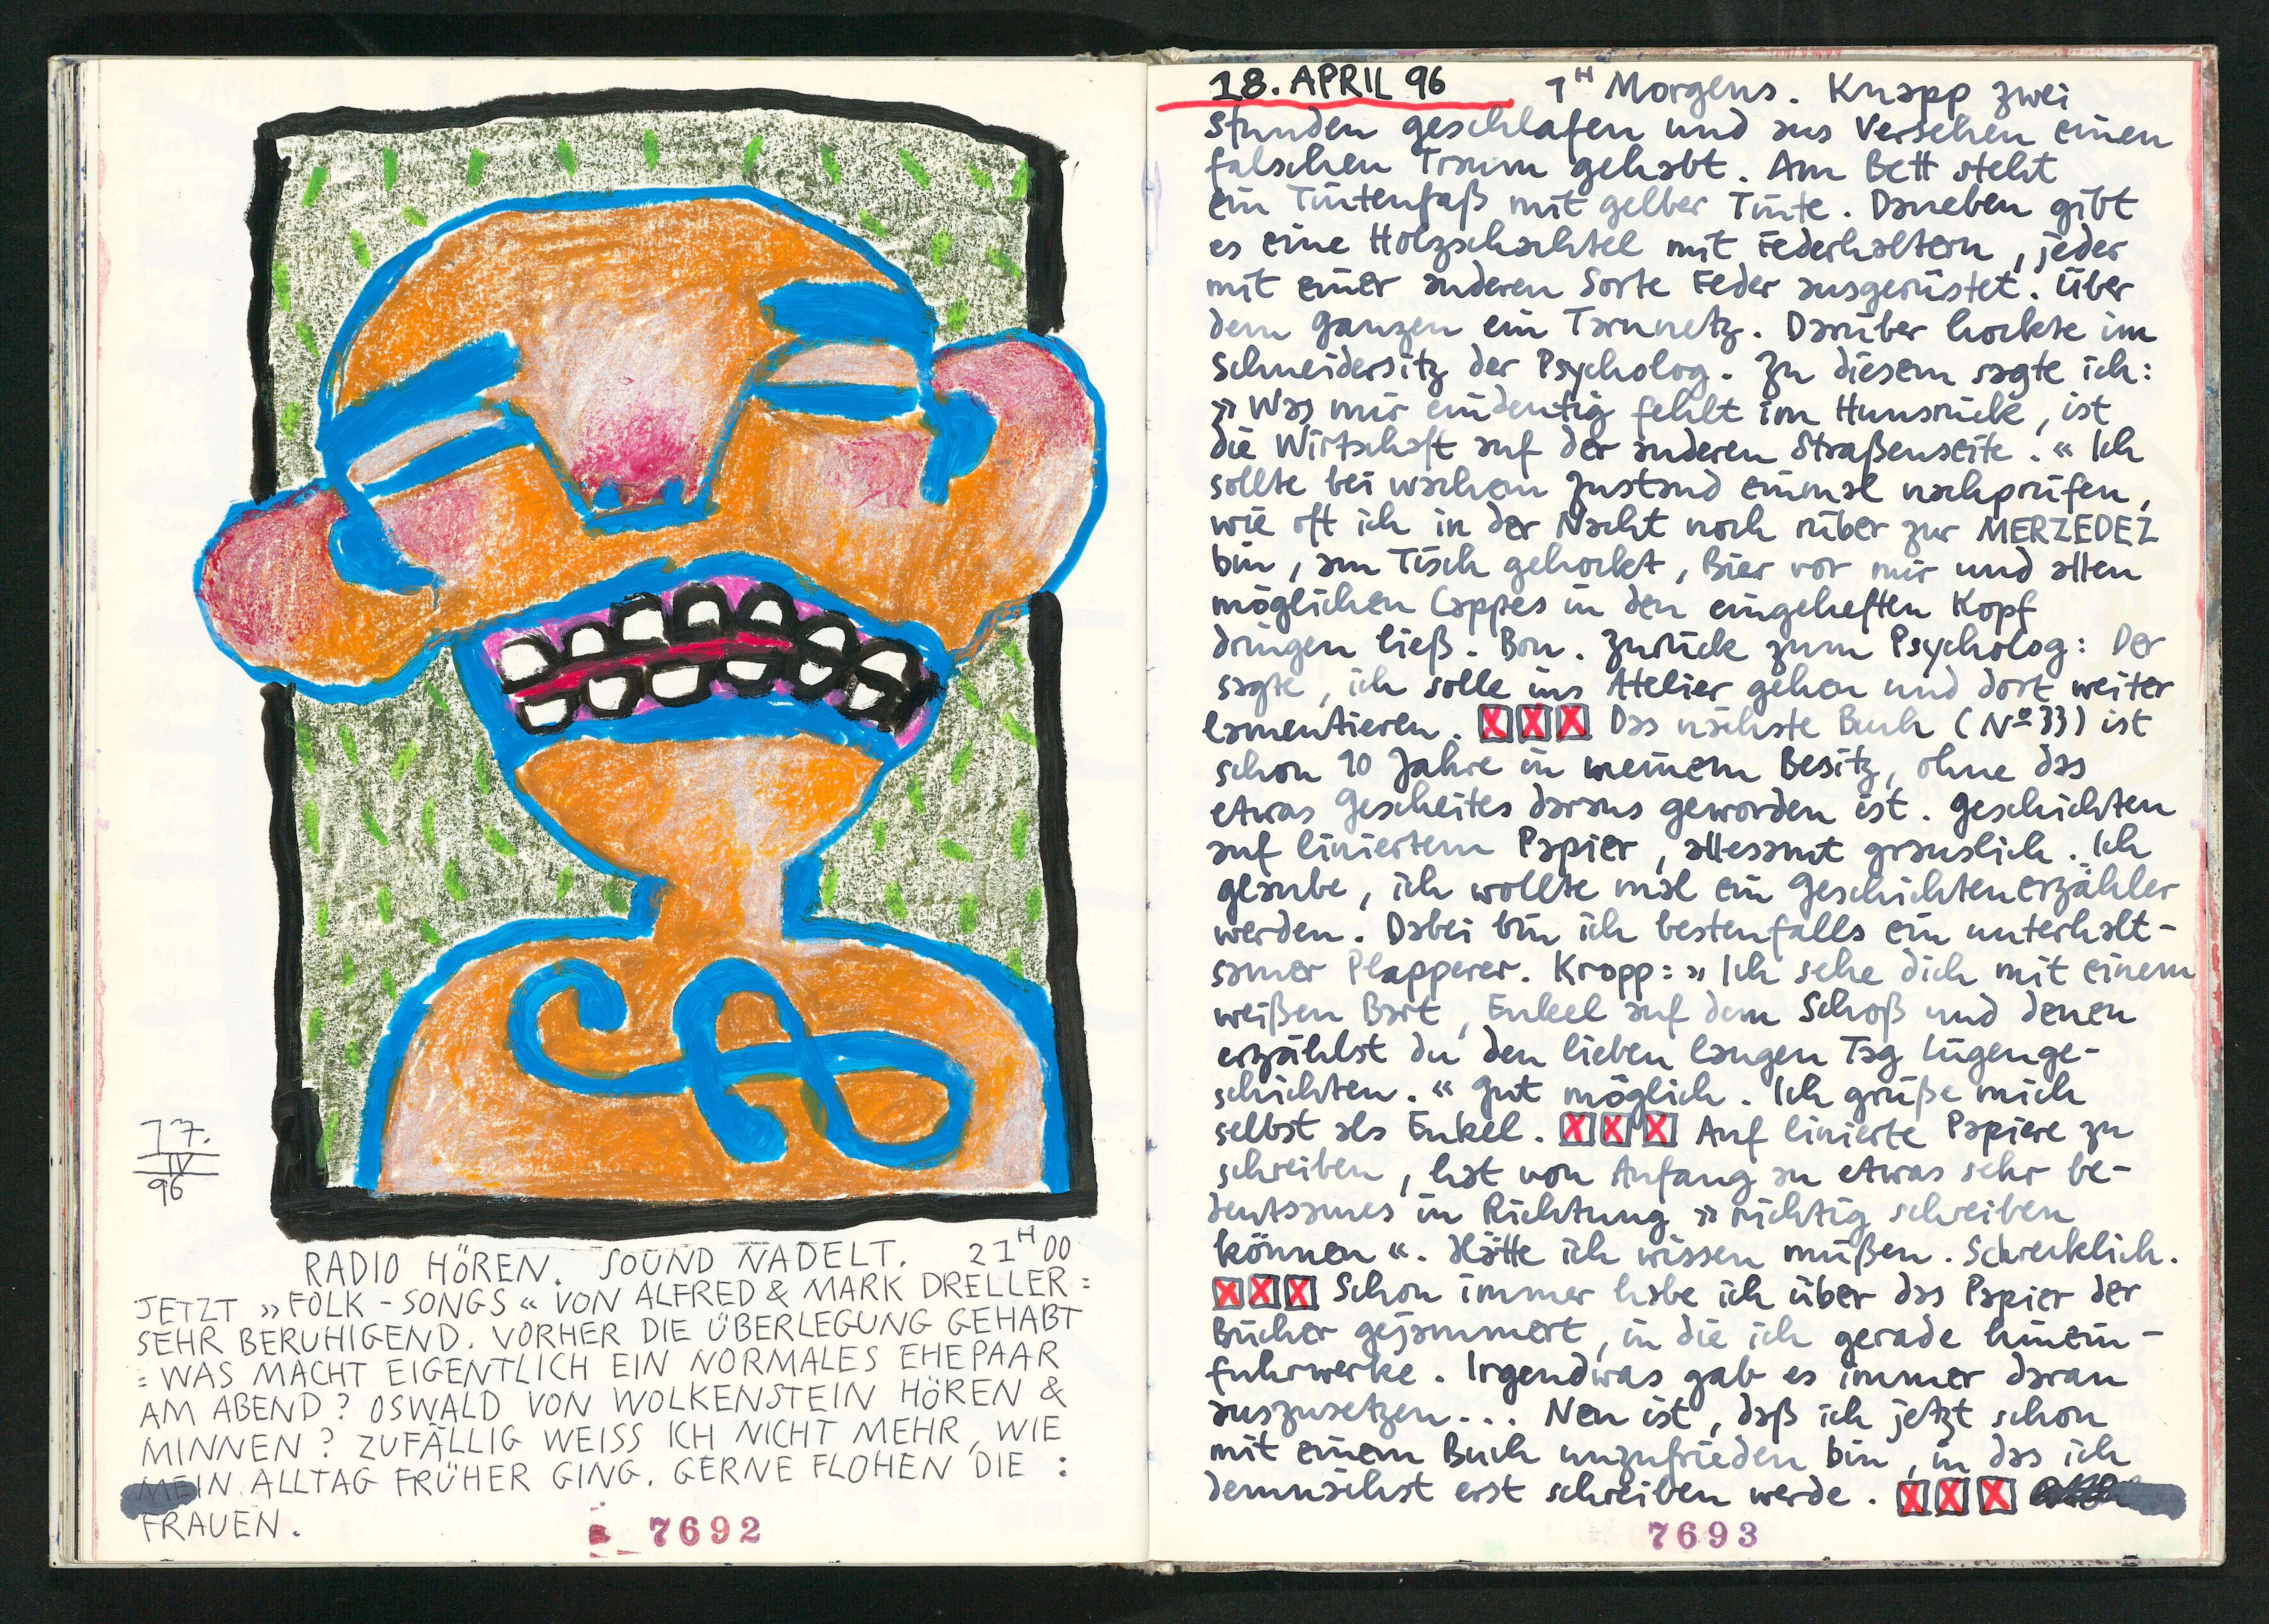 17.
IV
96
RADIO HÖREN. SOUND NADELT. 21H00
JETZT »FOLK-SONGS« VON ALFRED & MARK DRELLER:
SEHR BERUHIGEND. VORHER DIE ÜBERLEGUNG GEHABT
: WAS MACHT EIGENTLICH EIN NORMALES EHEPAAR
AM ABEND? OSWALD VON WOLKENSTEIN HÖREN &
MINNEN? ZUFÄLLIG WEISS ICH NICHT MEHR, WIE
MEIN ALLTAG FRÜHER GING. GERNE FLOHEN DIE :
FRAUEN.
7692
18. APRIL 96 1H Morgens. Knapp zwei
Stunden geschlafen und aus Versehen einen
falschen Traum gehabt. Am Bett steht
ein Tintenfaß mit gelber Tinte. Daneben gibt
es eine Holzschachtel mit Federhaltern, jeder
mit einer anderen Sorte Feder ausgerüstet. Über
dem Ganzen ein Tarnnetz. Darüber hockte im
Schneidersitz der Psycholog. Zu diesem sagte ich:
»Was mir eindeutig fehlt im Hunsrück, ist
die Wirtschaft auf der anderen Straßenseite.« Ich
sollte bei wachem Zustand einmal nachprüfen,
wie oft ich in der Nacht noch rüber zur MERZEDEZ
bin, am Tisch gehockt, Bier vor mir und allen
möglichen Cappes in den eingeheften Kopf
dringen ließ. Bon. Zurück zum Psycholog: Der
sagte, ich solle ins Atelier gehen und dort weiter
lamentieren. XXX Das nächste Buch (Nº 33) ist
schon 10 Jahre in meinem Besitz, ohne das
etwas Gescheites daraus geworden ist. Geschichten
auf liniertem Papier, allesamt grauslich. Ich
glaube, ich wollte mal ein Geschichtenerzähler
werden. Dabei bin ich bestenfalls ein unterhalt-
samer Plapperer. Kropp: »Ich sehe dich mit einem
weißen Bart, Enkel auf dem Schoß und denen
erzählst du den lieben langen Tag Lügenge-
schichten.« Gut möglich. Ich grüße mich
selbst als Enkel. XXX Auf linierte Papiere zu
schreiben, hat von Anfang an etwas sehr be-
deutsames in Richtung »richtig schreiben
können«. Hätte ich wissen müßen. Schrecklich.
XXX Schon immer habe ich über das Papier der
Bücher gejammert, in die ich gerade hinein-
fuhrwerke. Irgendwas gab es immer daran
auszusetzen... Neu ist, daß ich jetzt schon
mit einem Buch unzufrieden bin, in das ich
demnächst erst schreiben werde. XXX
7693